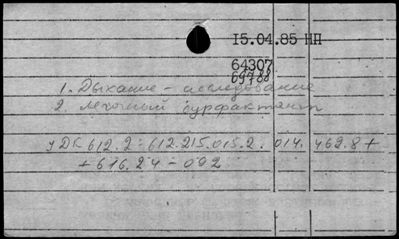 15.04.85 НП
64307
69788
1. Дыхание – исследование
2. легочный сурфактант
УДК 612.2:612.215.015.2.014.462.8+
+616.24-092